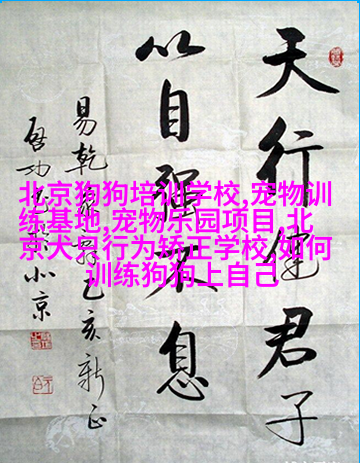 天行健君子
以自强不息
易乾象辞乙亥新正
北京狗狗培训学校,宠物训
练基地,宠物乐园项目,北
京犬只行为轿正学校,如何
训练狗狗上自己